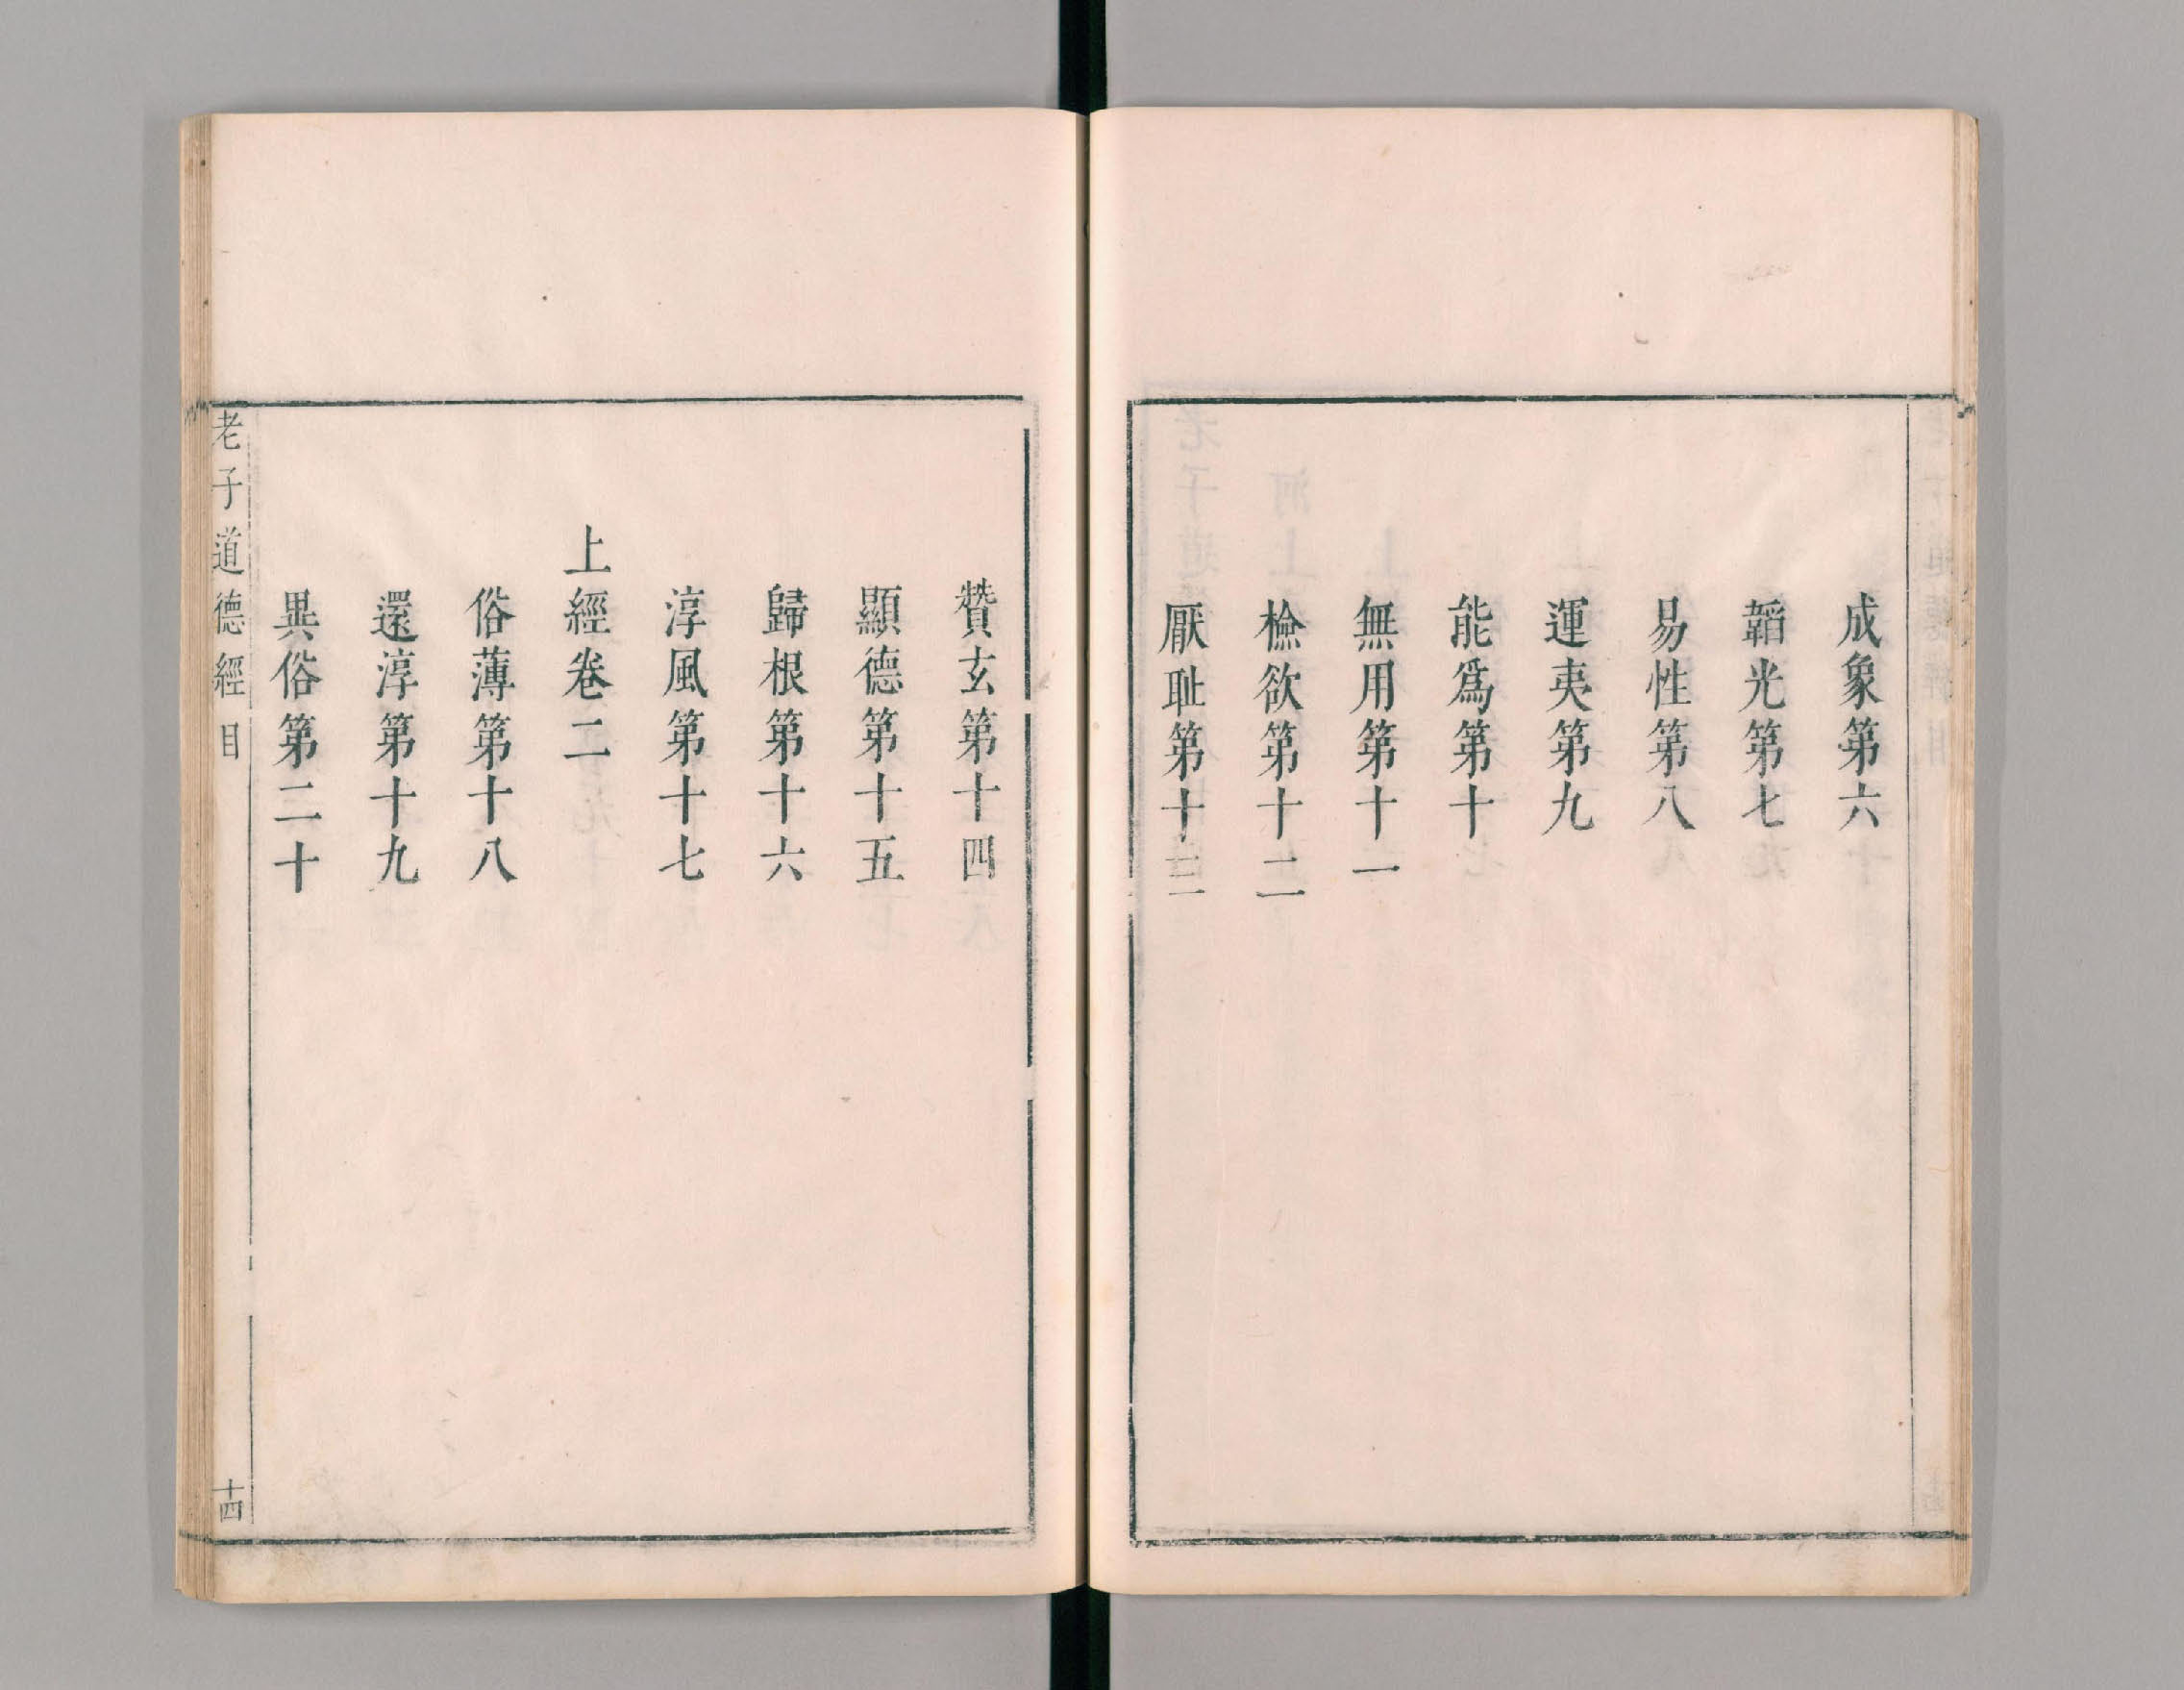 成象第六
韜光第七
易性第八
運夷第九
能爲第十
無用第十一
檢欲第十二
厭耻第十三
贊玄第十四
顯德第十五
歸根第十六
淳風第十七
上經卷二
俗薄第十八
還淳第十九
異俗第二十
老子道德經 目 十四